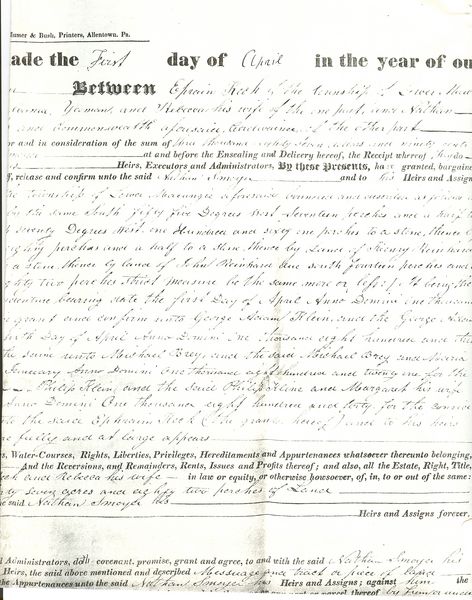 Humer & Bush, Printers, Allentown, Pa.
ade the First day of April in the year of ou
Between Ephraim Keck of the township of Lower Mac
Yeoman, and Rebecca his wife of the one part, and Nathan
and Commonwealth aforesaid, of the other part
e and in consideration of the sum of two thousand eighty seven dollars and ninety cents
at and before the Ensealing and Delivery hereof, the Receipt whereof
Heirs, Executors and Administrators, By these Presents, ha granted, bargaine
f, release and confirm unto the said Nathan Smoyer and to his Heirs and Assign
the township of Lower Macungie aforesaid bounded and described as follows
by the same South fifty five Degrees West Seventeen perches and a half
seventy Degrees West One Hundred and sixty one perches to a stone, thence b
eighty perches and a half to a stone, thence by Land of Henry Reinhard
a stone thence by land of John Reinhard due south fourteen perches and
eighty two perches strict measure be the same more or less; It being the
ndenture bearing date the first Day of April Anno Domini One thousand
grant and confirm unto George Adam Klein, and the George Adam
Day of April Anno Domini One thousand eight hundred and thi
the same unto Michael Brey, and the said Michael Brey and Maria
January Anno Domini One thousand eight hundred and twenty one for the
Philip Klein, and the said Philip Kline and Margaret his wife
Anno Domini One thousand eight hundred and forty for the consid
unto the said Ephraim Keck (the grantor hereof) and to his heirs
re fully and at large appears
s, Water-Courses, Rights, Liberties, Privileges, Hereditaments and Appurtenances whatsoever thereunto belonging,
And the Reversions, and Remainders, Rents, Issues and Profits thereof; and also, all the Estate, Right, Title,
eck and Rebecca his wife in law or equity, or otherwise howsoever, of, in, to or out of the same:
ty seven acres and eighty two perches of Land
he said Nathan Smoyer his
Heirs and Assigns forever.
d Administrators, doth covenant, promise, grant and agree, to and with the said Nathan Smoyer his
Heirs, the said above mentioned and described Messuage and tract or piece of Land
the Appurtenances unto the said Nathan Smoyer his Heirs and Assigns; against him the
or any part or parcel thereof by from or under